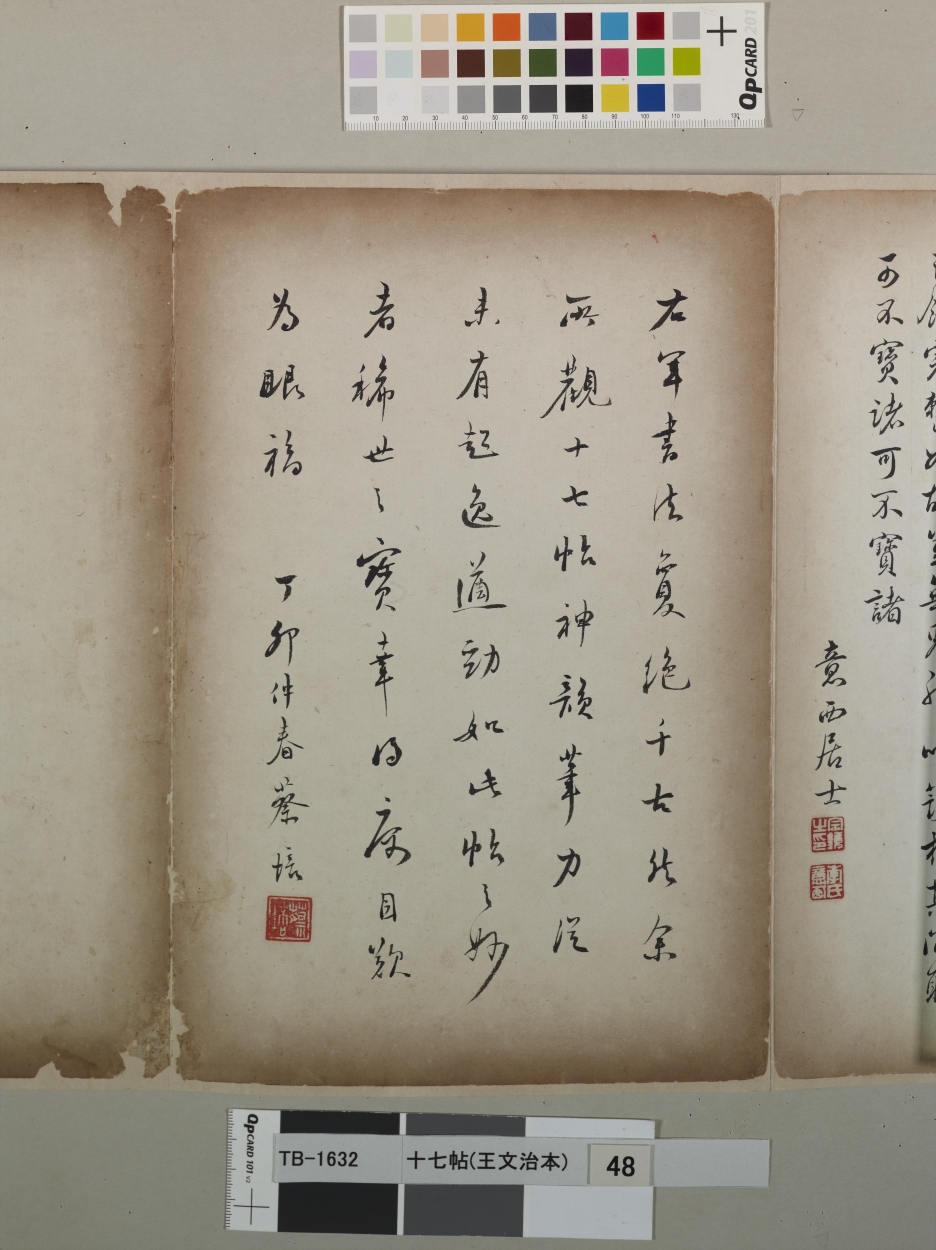 QPCARD 201
10 20 30 40 50 60 70 80 90 100 110 130
可不寶諸可不寶諸
意西居士
右軍書法夐絶千古然余
所觀十七帖神韻筆力從
未有超逸遒勁如此帖之妙
者稀世之寶幸得寓目歎
為眼福
丁卯仲春蔡培
蔡培
QPCARD 101 v2
TB-1632 十七帖(王文治本) 48